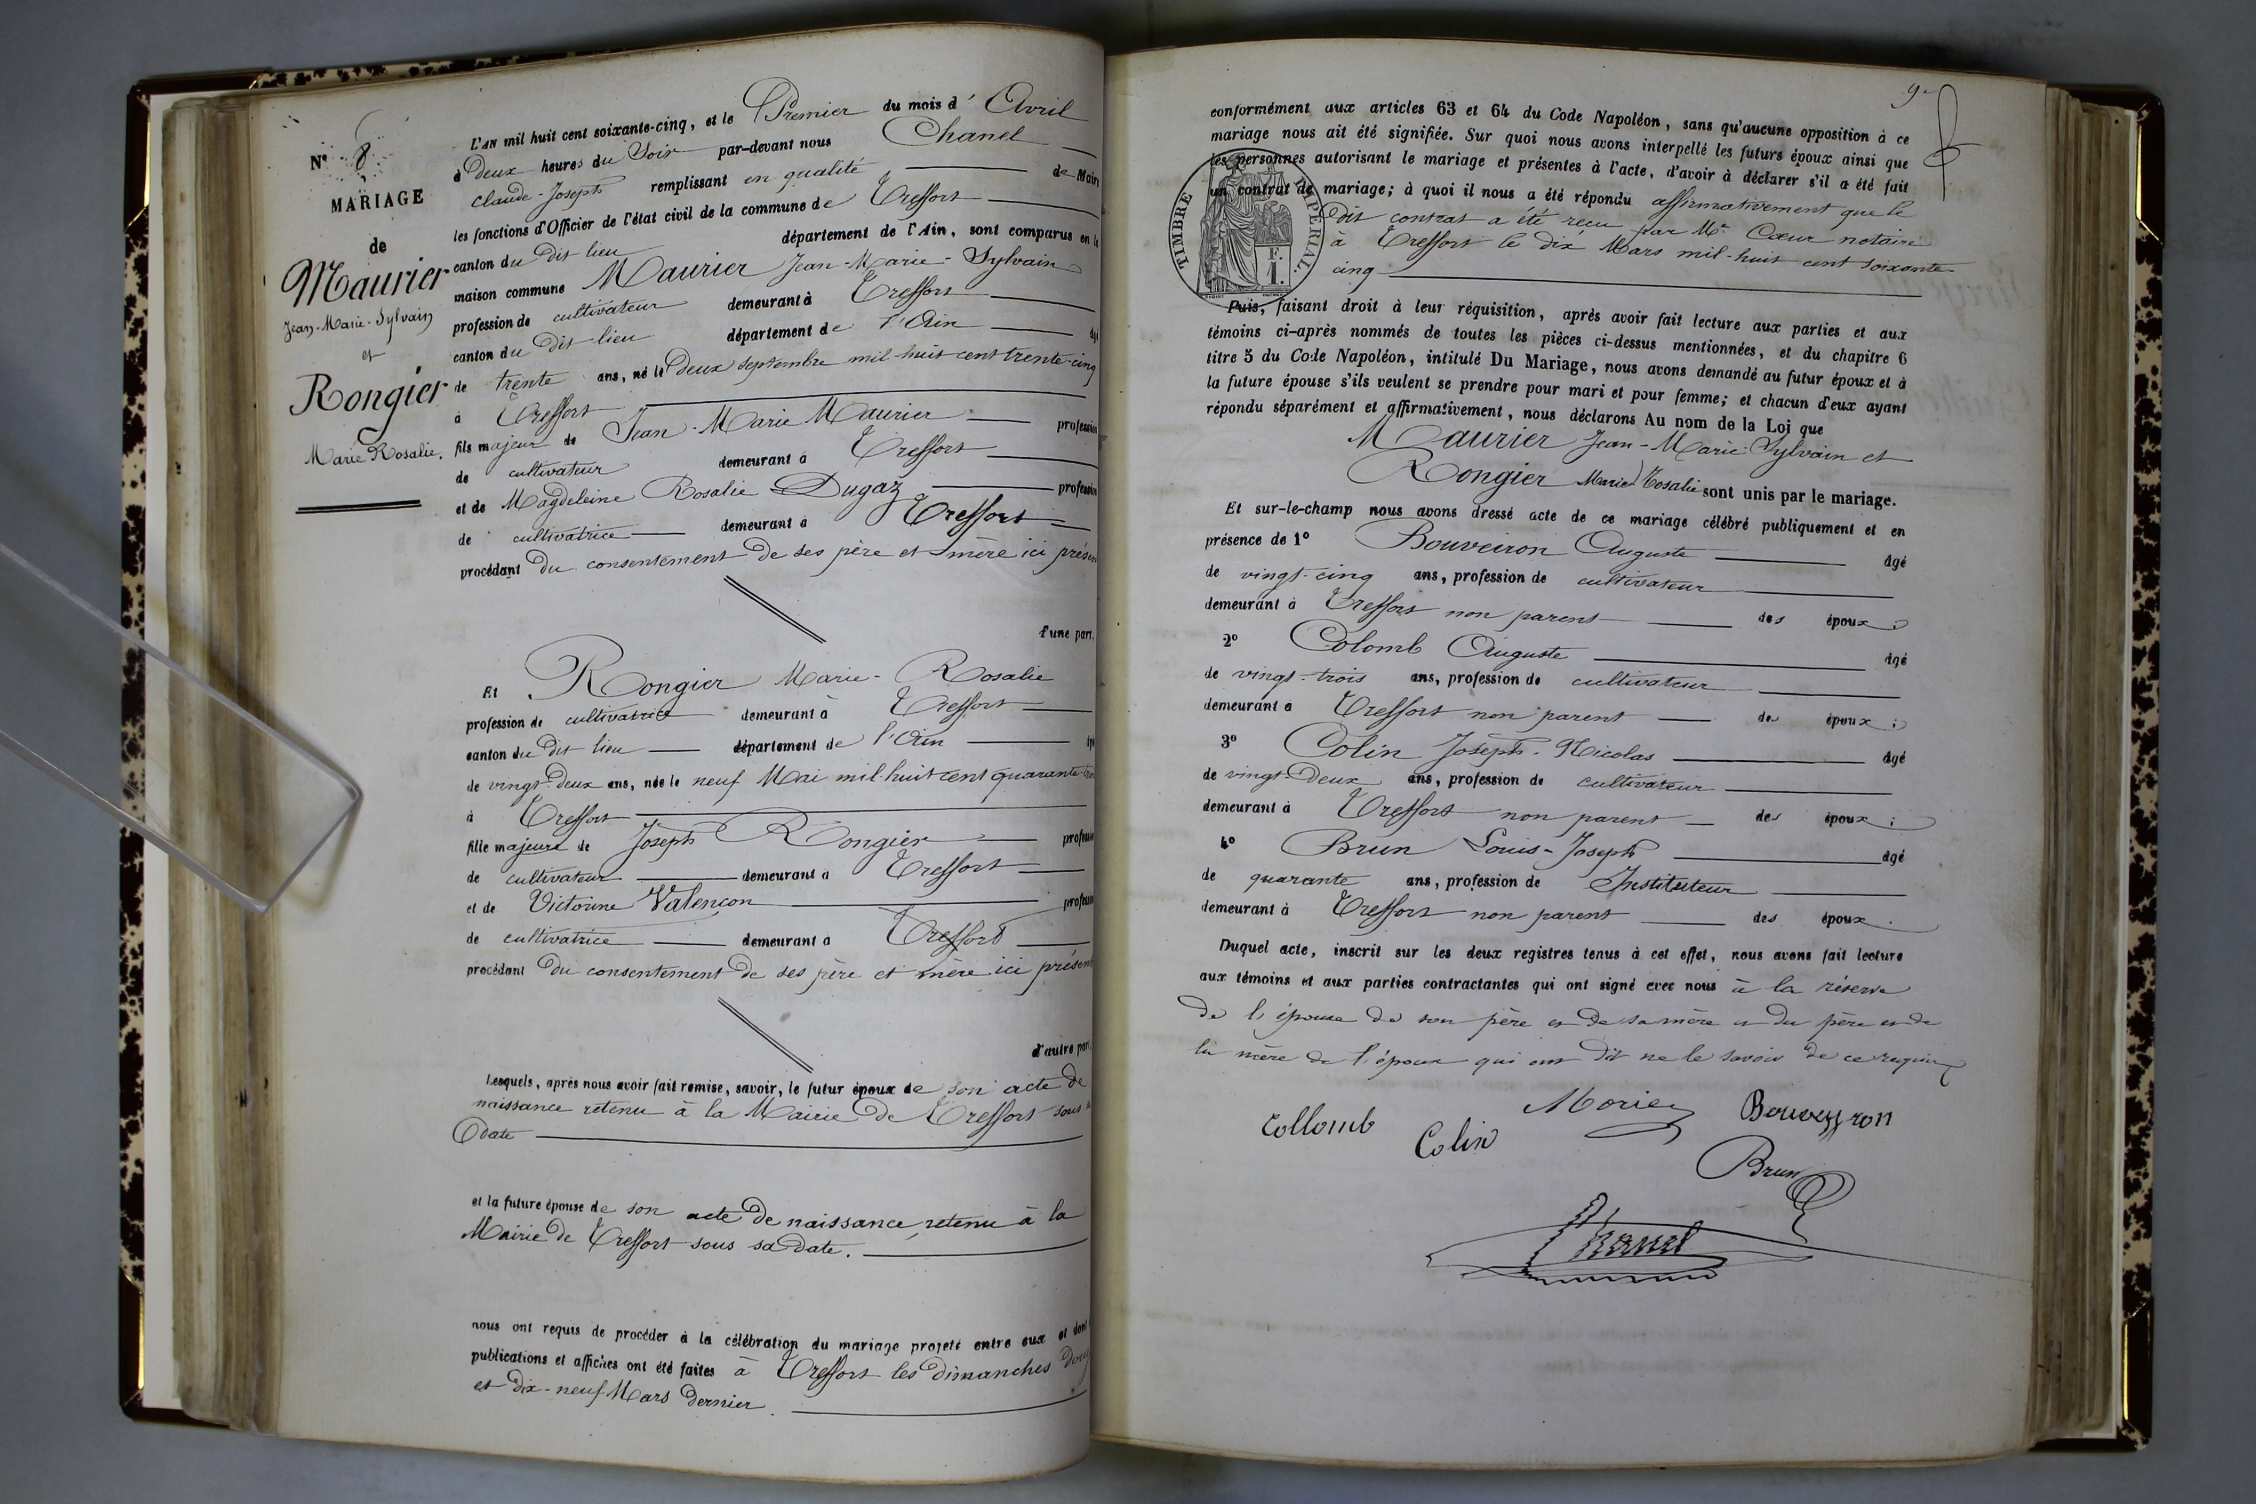 N° 8
MARIAGE
de
Maurier
Jean-Marie-Sylvain
et
Rongier
Marie Rosalie.
L'AN mil huit cent soixante-cinq, et le Premier du mois d' Avril
à Deux heures du Soir par-devant nous Chanel
Claude-Joseph remplissant en qualité de Maire
les fonctions d'Officier de l'état civil de la commune de Treffort
canton du dit lieu département de l'Ain, sont comparus en la
maison commune Maurier Jean-Marie-Sylvain
profession de cultivateur demeurant à Treffort
canton du dit-lieu département de l'Ain âgé
de trente ans, né le deux septembre mil-huit cent trente-cinq
à Treffort
fils majeur de Jean-Marie Maurier profession
de cultivateur demeurant à Treffort
et de Magdeleine Rosalie Dugaz profession
de cultivatrice demeurant à Treffort
procédant du consentement de ses père et mère ici présen
d'une part.
Et Rongier Marie-Rosalie
profession de cultivatrice demeurant à Treffort
canton du dit lieu département de l'Ain âgé
de vingt-deux ans, née le neuf Mai mil-huit cent quarante-
à Treffort
fille majeure de Joseph Rongier profession
de cultivateur demeurant à Treffort
et de Victorine Valençon profession
de cultivatrice demeurant à Treffort
procédant du consentement de ses père et mère ici présent
d'autre part.
Lesquels, après nous avoir fait remise, savoir, le futur époux de son acte de
naissance retenu à la Mairie de Treffort sous sa
date
et la future épouse de son acte de naissance, retenu à la
Mairie de Treffort sous sa date.
nous ont requis de procéder à la célébration du mariage projeté entre eux et dont
publications et affiches ont été faites à Treffort les dimanches douze
et dix-neuf Mars dernier.
9
conformément aux articles 63 et 64 du Code Napoléon, sans qu'aucune opposition à ce
mariage nous ait été signifiée. Sur quoi nous avons interpellé les futurs époux ainsi que
les personnes autorisant le mariage et présentes à l'acte, d'avoir à déclarer s'il a été fait
un contrat de mariage; à quoi il nous a été répondu affirmativement que le
dit contrat a été reçu par Me Cœur notaire
à Treffort le dix Mars mil-huit cent soixante
cinq
TIMBRE IMPÉRIAL.
1 F.
Puis, faisant droit à leur réquisition, après avoir fait lecture aux parties et aux
témoins ci-après nommés de toutes les pièces ci-dessus mentionnées, et du chapitre 6
titre 5 du Code Napoléon, intitulé Du Mariage, nous avons demandé au futur époux et à
la future épouse s'ils veulent se prendre pour mari et pour femme; et chacun d'eux ayant
répondu séparément et affirmativement, nous déclarons Au nom de la Loi que
Maurier Jean-Marie-Sylvain et
Rongier Marie Rosalie sont unis par le mariage.
Et sur-le-champ nous avons dressé acte de ce mariage célébré publiquement et en
présence de 1° Bouveiron Auguste âgé
de vingt-cinq ans, profession de cultivateur
demeurant à Treffort non parent des époux;
2° Colomb Auguste âgé
de vingt-trois ans, profession de cultivateur
demeurant à Treffort non parent des époux;
3° Colin Joseph-Nicolas âgé
de vingt-deux ans, profession de cultivateur
demeurant à Treffort non parent des époux;
4° Brun Louis-Joseph âgé
de quarante ans, profession de Instituteur
demeurant à Treffort non parent des époux.
Duquel acte, inscrit sur les deux registres tenus à cet effet, nous avons fait lecture
aux témoins et aux parties contractantes qui ont signé avec nous à la réserve
de l'épouse de son père et de sa mère et du père et de
la mère de l'époux qui ont dit ne le savoir de ce requis
Morier Bouveyron
Collomb Colin
Brun
Chanel